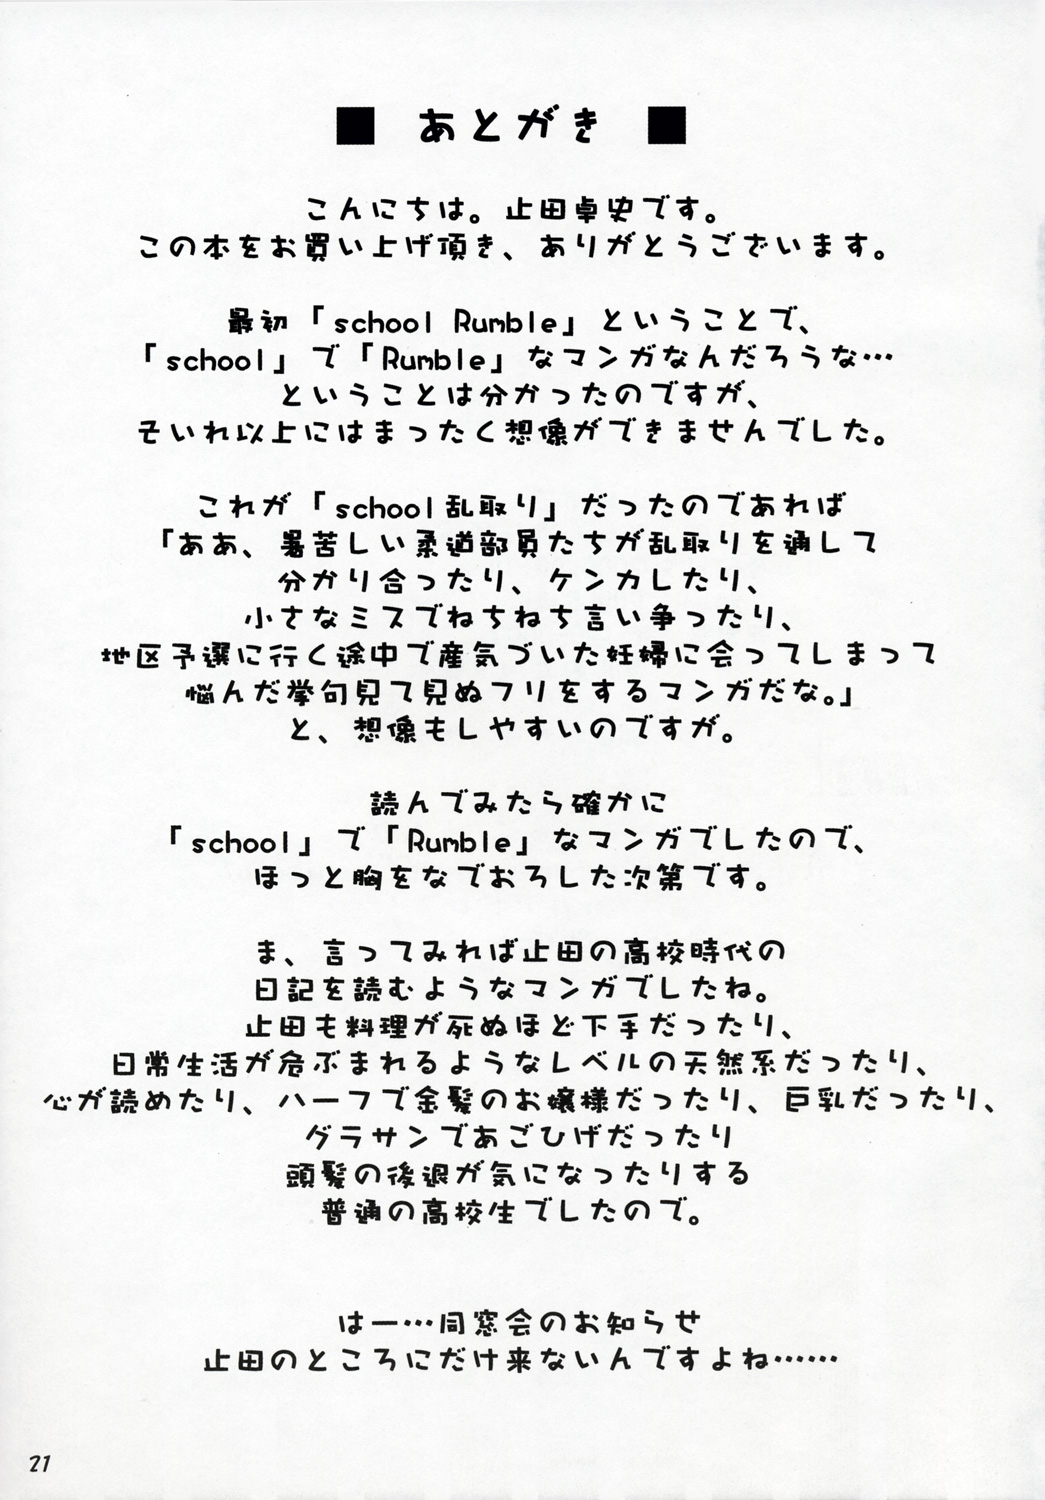 ■ あとがき ■
こんにちは。止田卓史です。
この本をお買い上げ頂き、ありがとうございます。
最初「school Rumble」ということで、
「school」で「Rumble」なマンガなんだろうな…
ということは分かったのですが、
そいれ以上にはまったく想像ができませんでした。
これが「school乱取り」だったのであれば
「ああ、暑苦しい柔道部員たちが乱取りを通して
分かり合ったり、ケンカしたり、
小さなミスでねちねち言い争ったり、
地区予選に行く途中で産気づいた妊婦に会ってしまって
悩んだ挙句見て見ぬフリをするマンガだな。」
と、想像もしやすいのですが。
読んでみたら確かに
「school」で「Rumble」なマンガでしたので、
ほっと胸をなでおろした次第です。
ま、言ってみれば止田の高校時代の
日記を読むようなマンガでしたね。
止田も料理が死ぬほど下手だったり、
日常生活が危ぶまれるようなレベルの天然系だったり、
心が読めたり、ハーフで金髪のお嬢様だったり、巨乳だったり、
グラサンであごひげだったり
頭髪の後退が気になったりする
普通の高校生でしたので。
はー…同窓会のお知らせ
止田のところにだけ来ないんですよね……
21